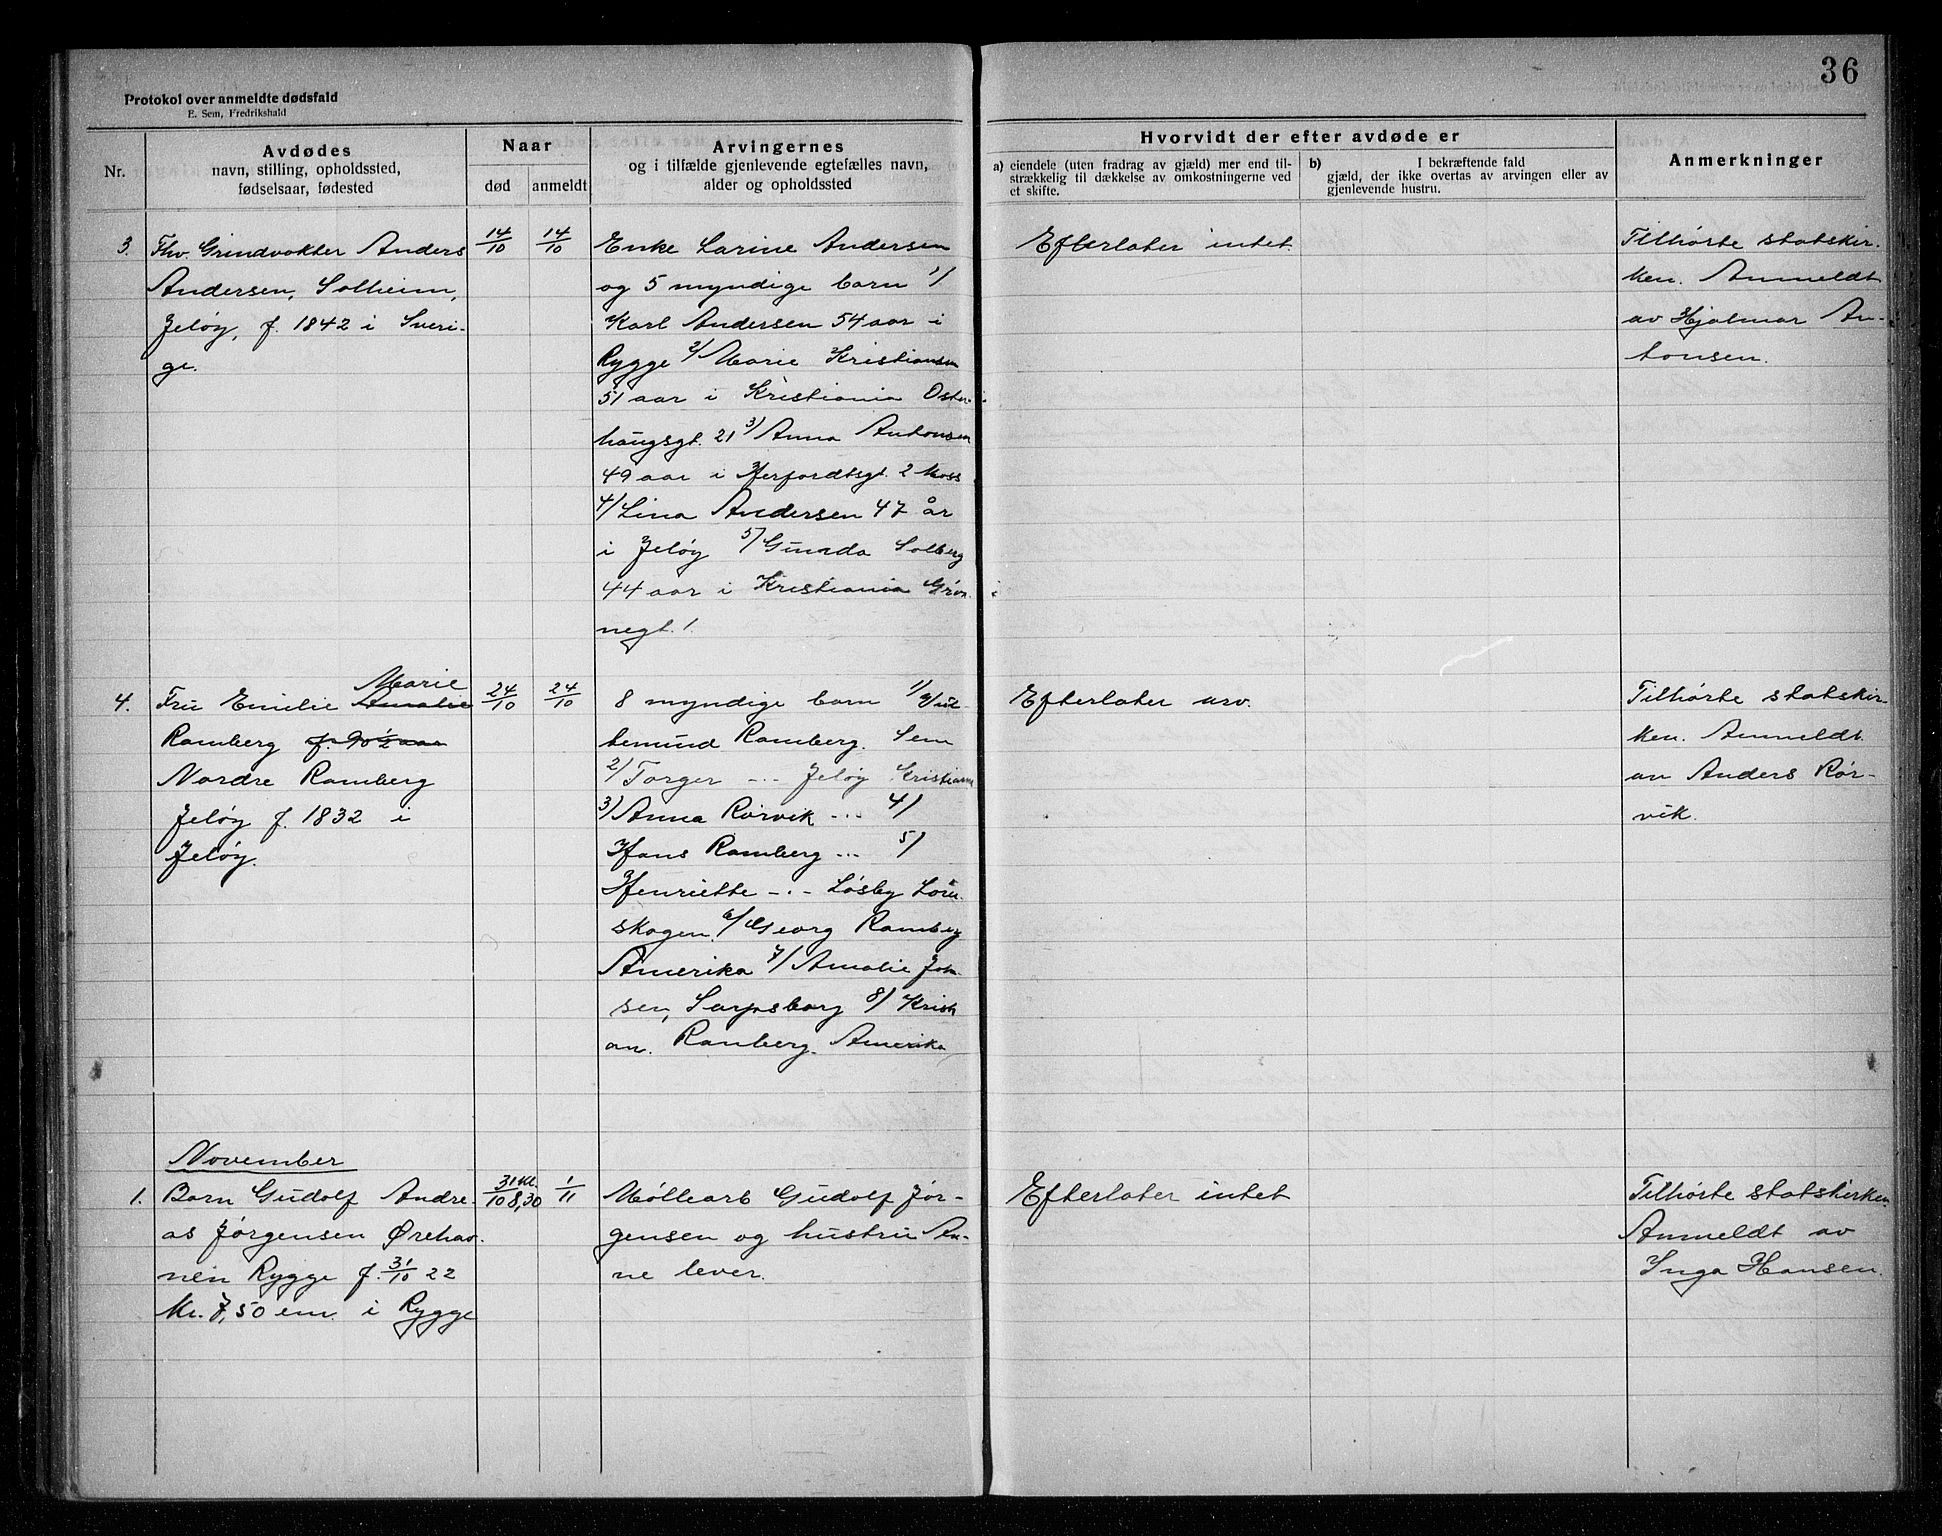 36
Protokol over anmeldte dødsfald
E. Sem, Fredrikshald
Nr.
Avdødes
navn, stilling, opholdssted,
fødselsaar, fødested
Naar
død
anmeldt
Arvingernes
og i tilfælde gjenlevende egtefælles navn,
alder og opholdssted
Hvorvidt der efter avdøde er
a) eiendele (uten fradrag av gjæld) mer end til-
strækkelig til dækkelse av omkostningerne ved
et skifte.
b) I bekræftende fald
gjæld, der ikke overtas av arvingen eller av
gjenlevende hustru.
Anmerkninger
3.
Fhv. Grindvokter Anders
Andersen, Solheim,
Jeløy, f. 1842 i Sveri-
ge.
14/10
14/10
Enke Larine Andersen
og 5 myndige barn 1/
Karl Andersen 54 aar i
Rygge 2/ Marie Kristiansen
51 aar i Kristiania Oster-
haugsgt. 21 3/ Anna Antonsen
49 aar i Herfordtsgt. 2 Moss
4/ Lina Andersen 47 år
i Jeløy 5/ Gunda Solberg
44 aar i Kristiania Grøn-
negt. 1.
Efterlater intet.
Tilhørte statskir-
ken. Anmeldt
av Hjalmar An-
tonsen.
4.
Marie
Fru Emilie Amalie
Ramberg f. 90 1/2 aar
Nordre Ramberg
Jeløy f. 1832 i
Jeløy.
24/10
24/10
8 myndige barn 1/
temund Ramberg. Sem
2/ Torger -"- Jeløy Kristiania
3) Anna Rørvik -"- 4)
Hans Ramberg -"- 5)
Henriette -"- Løsby Lørn-
skogen. 6/ Georg Ramberg
Amerika 7/ Amalie Joh-
sen, Sarpsborg 8/ Kristi
an. Ramberg. Amerika
Efterlater arv.
Tilhørte statskir-
ken. Anmeldt
an Anders Rør-
vik.
November
1.
Barn Gudolf Andre-
as Jørgensen Ørehav-
nen Rygge f. 31/10 22
Kl. 7,50 em. i Rygge
31/10 Kl. 8,30
1/11
Møllearb Gudolf Jør-
gensen og hustru An-
ne lever.
Efterlater intet
Tilhørte statskirken.
Anmeldt av
Inga Hansen.